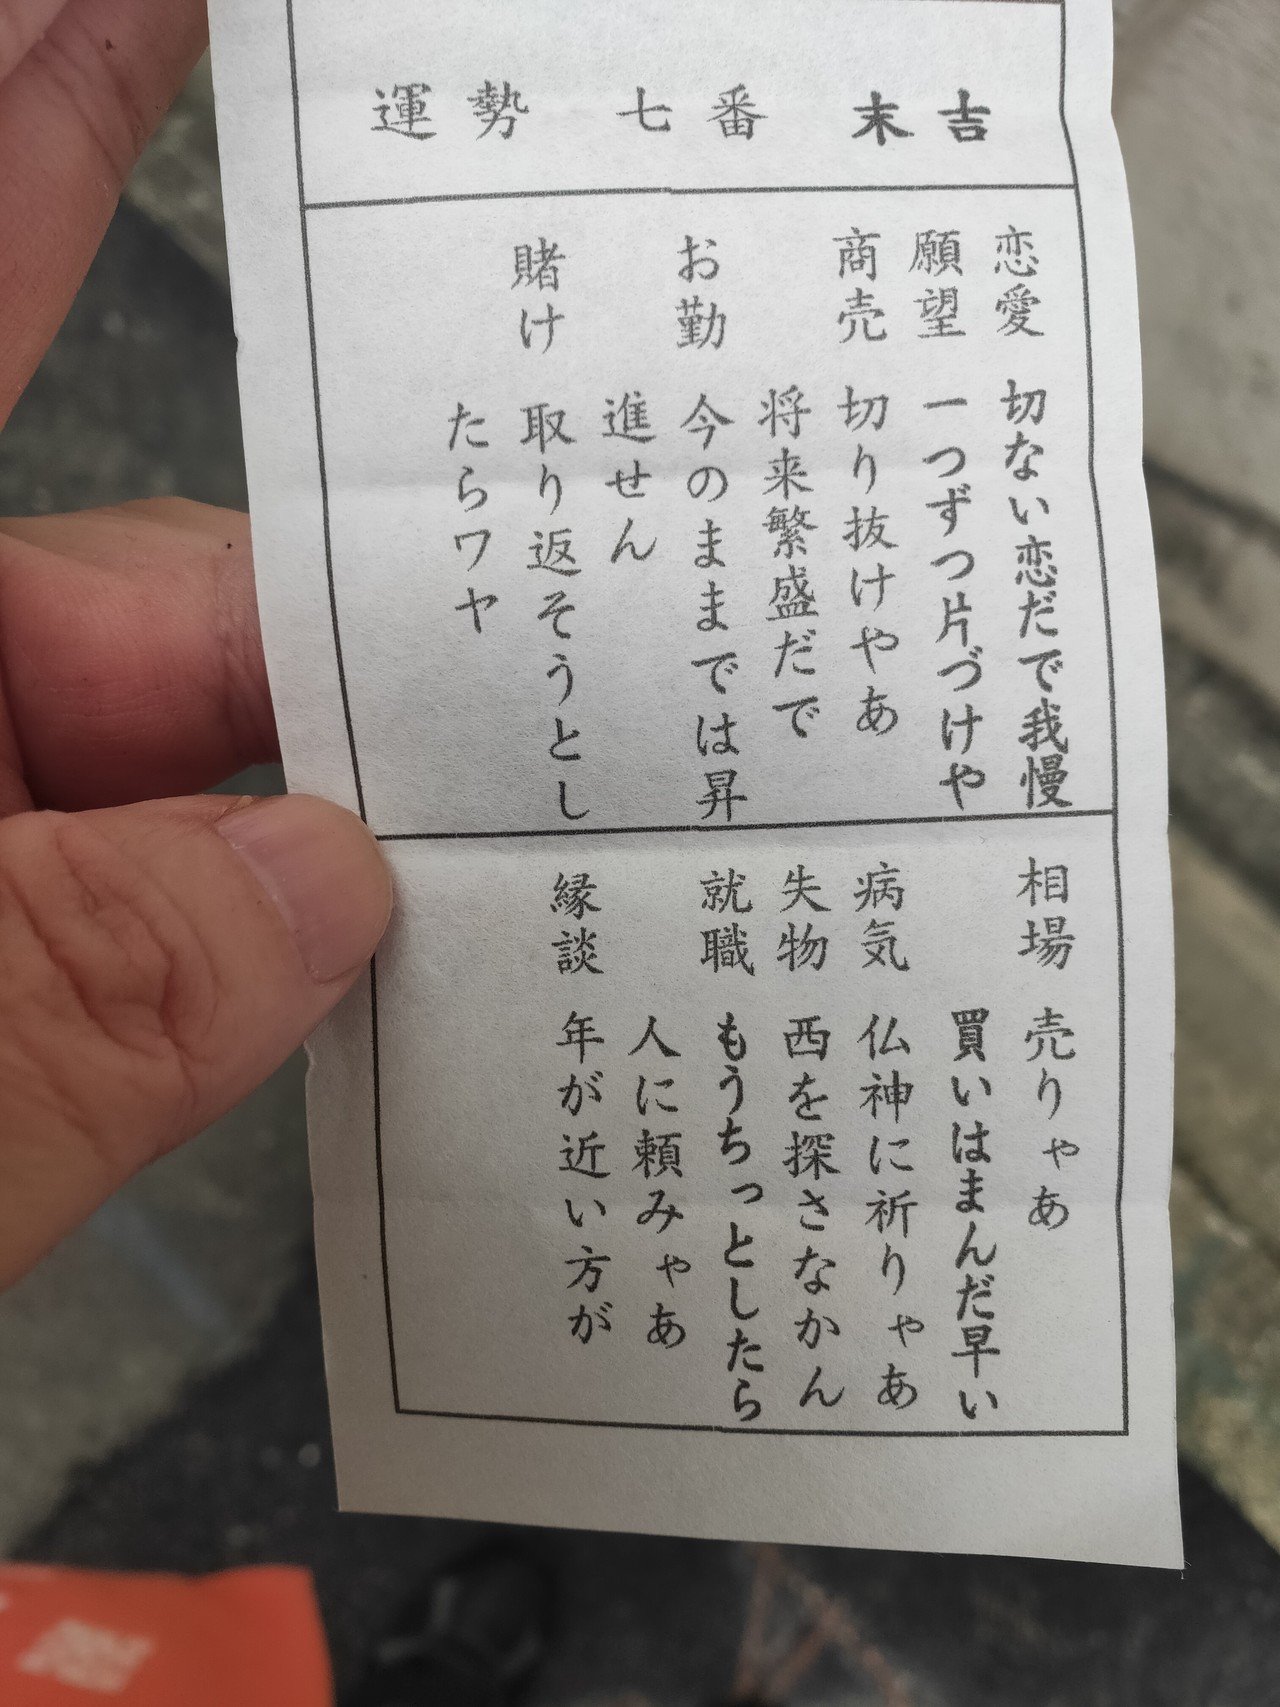 運勢 七番 末吉
恋愛 切ない恋だで我慢
願望 一つずつ片づけや
商売 切り抜けやあ
将来繁盛だで
お勤 今のままでは昇
進せん
賭け 取り返そうとし
たらワヤ
相場 売りゃあ
買いはまんだ早い
病気 仏神に祈りゃあ
失物 西を探さなかん
就職 もうちっとしたら
人に頼みゃあ
縁談 年が近い方が